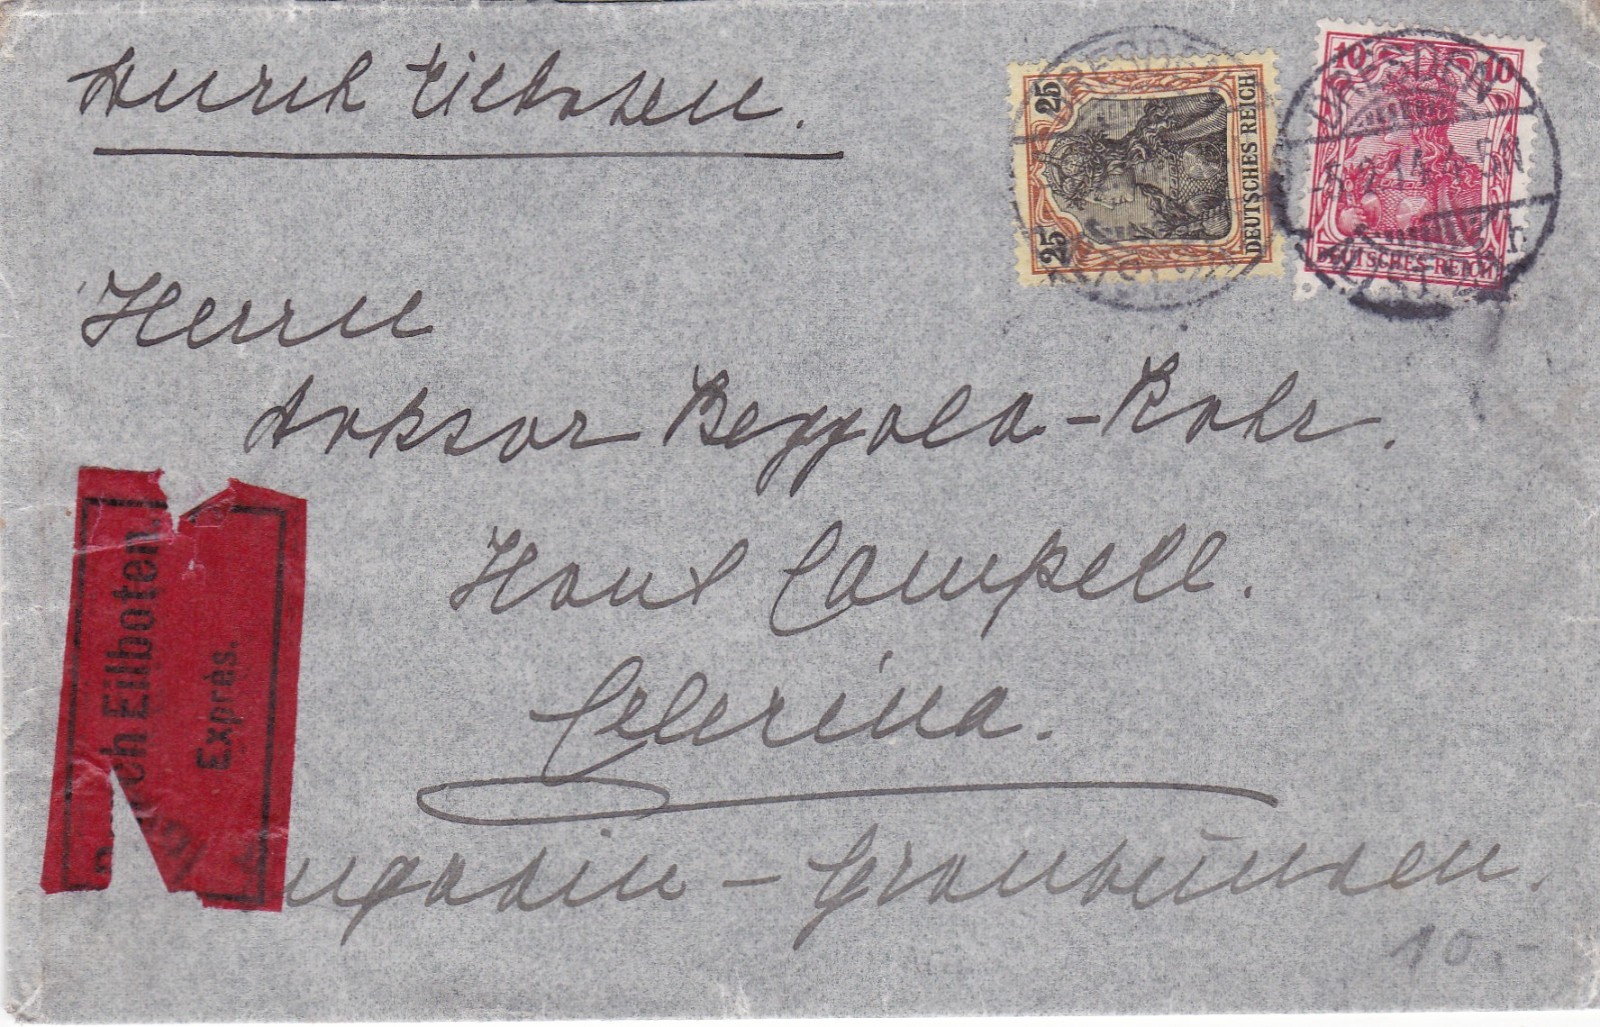 Durch Eilboten.
25 25
DEUTSCHES REICH
10 10
DEUTSCHES REICH
DRESDEN
-5.2.14. 4-5N
Herrn
Doktor Bezzola-Rohr.
Haus Campell.
Celerina.
Engadin - Graubünden.
ch Eilboten.
Exprès.
10.-